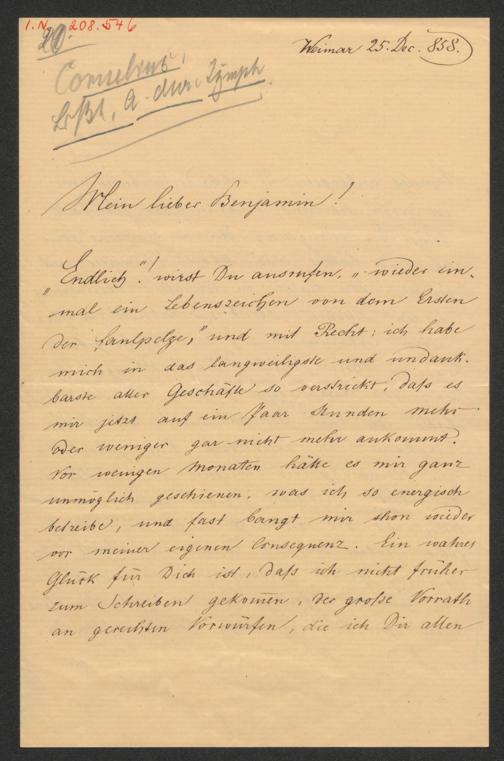 I.N. 208.546
20.
Weimar 25. Dec. 858.
Cornelius,
Lißt, A-dur-Symph.
Mein lieber Benjamin!
„Endlich"! wirst Du ausrufen, „wieder ein-
mal ein Lebenszeichen von dem Ersten
der Faulpelze," und mit Recht: ich habe
mich in das langweiligste und undank-
barste aller Geschäfte so verstrickt, daß es
mir jetzt auf ein Paar Stunden mehr
oder weniger gar nicht mehr ankommt.
Vor wenigen Monaten hätte es mir ganz
unmöglich geschienen, was ich so energisch
betreibe, und fast bangt mir schon wieder
vor meiner eigenen Consequenz. Ein wahres
Glück für Dich ist, daß ich nicht früher
zum Schreiben gekom̄en, der große Vorrath
an gerechten Vorwürfen, die ich Dir allen